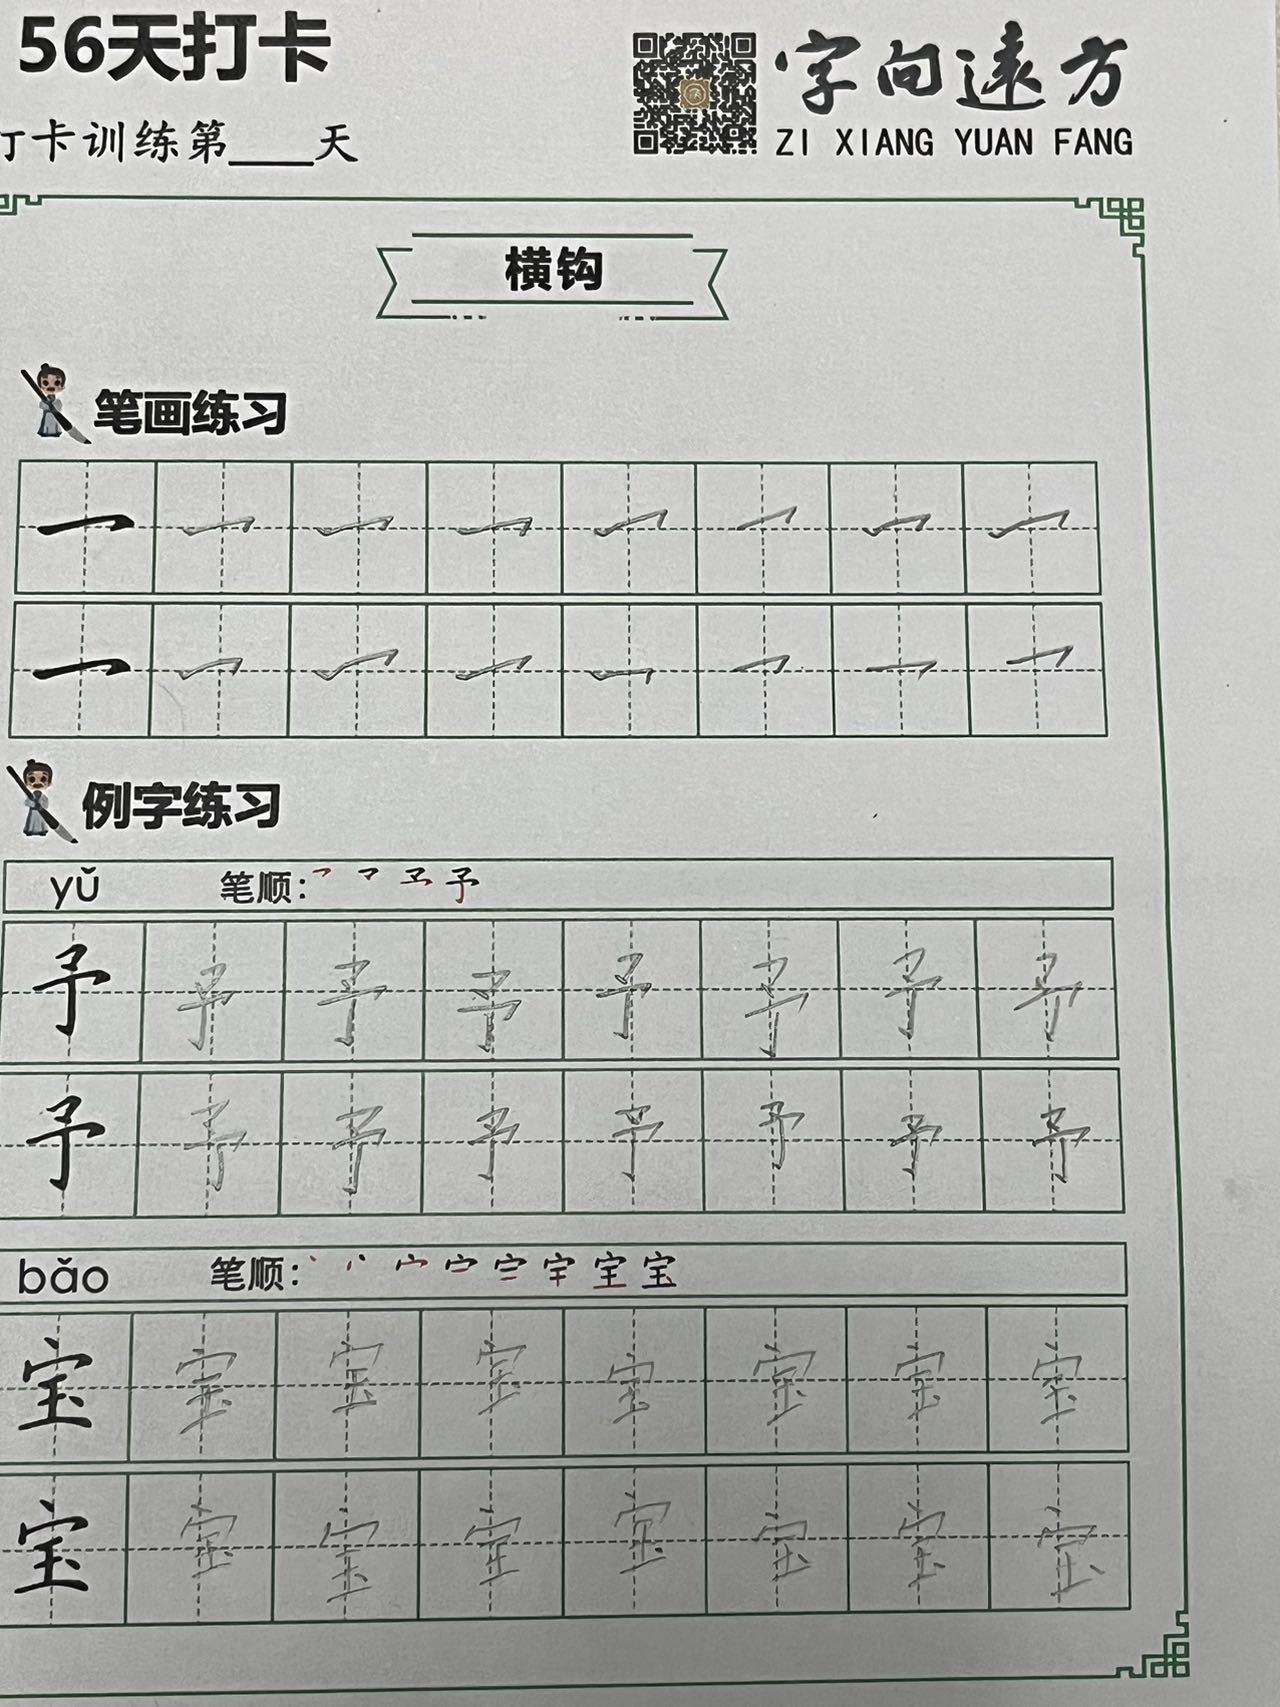 56天打卡
字向远方
打卡训练第___天
ZI XIANG YUAN FANG
横钩
笔画练习
例字练习
yǔ 笔顺:
予 予 予 予 予 予 予 予
予 予 予 予 予 予 予 予
bǎo 笔顺:
宝 宝 宝 宝 宝 宝 宝 宝
宝 宝 宝 宝 宝 宝 宝 宝